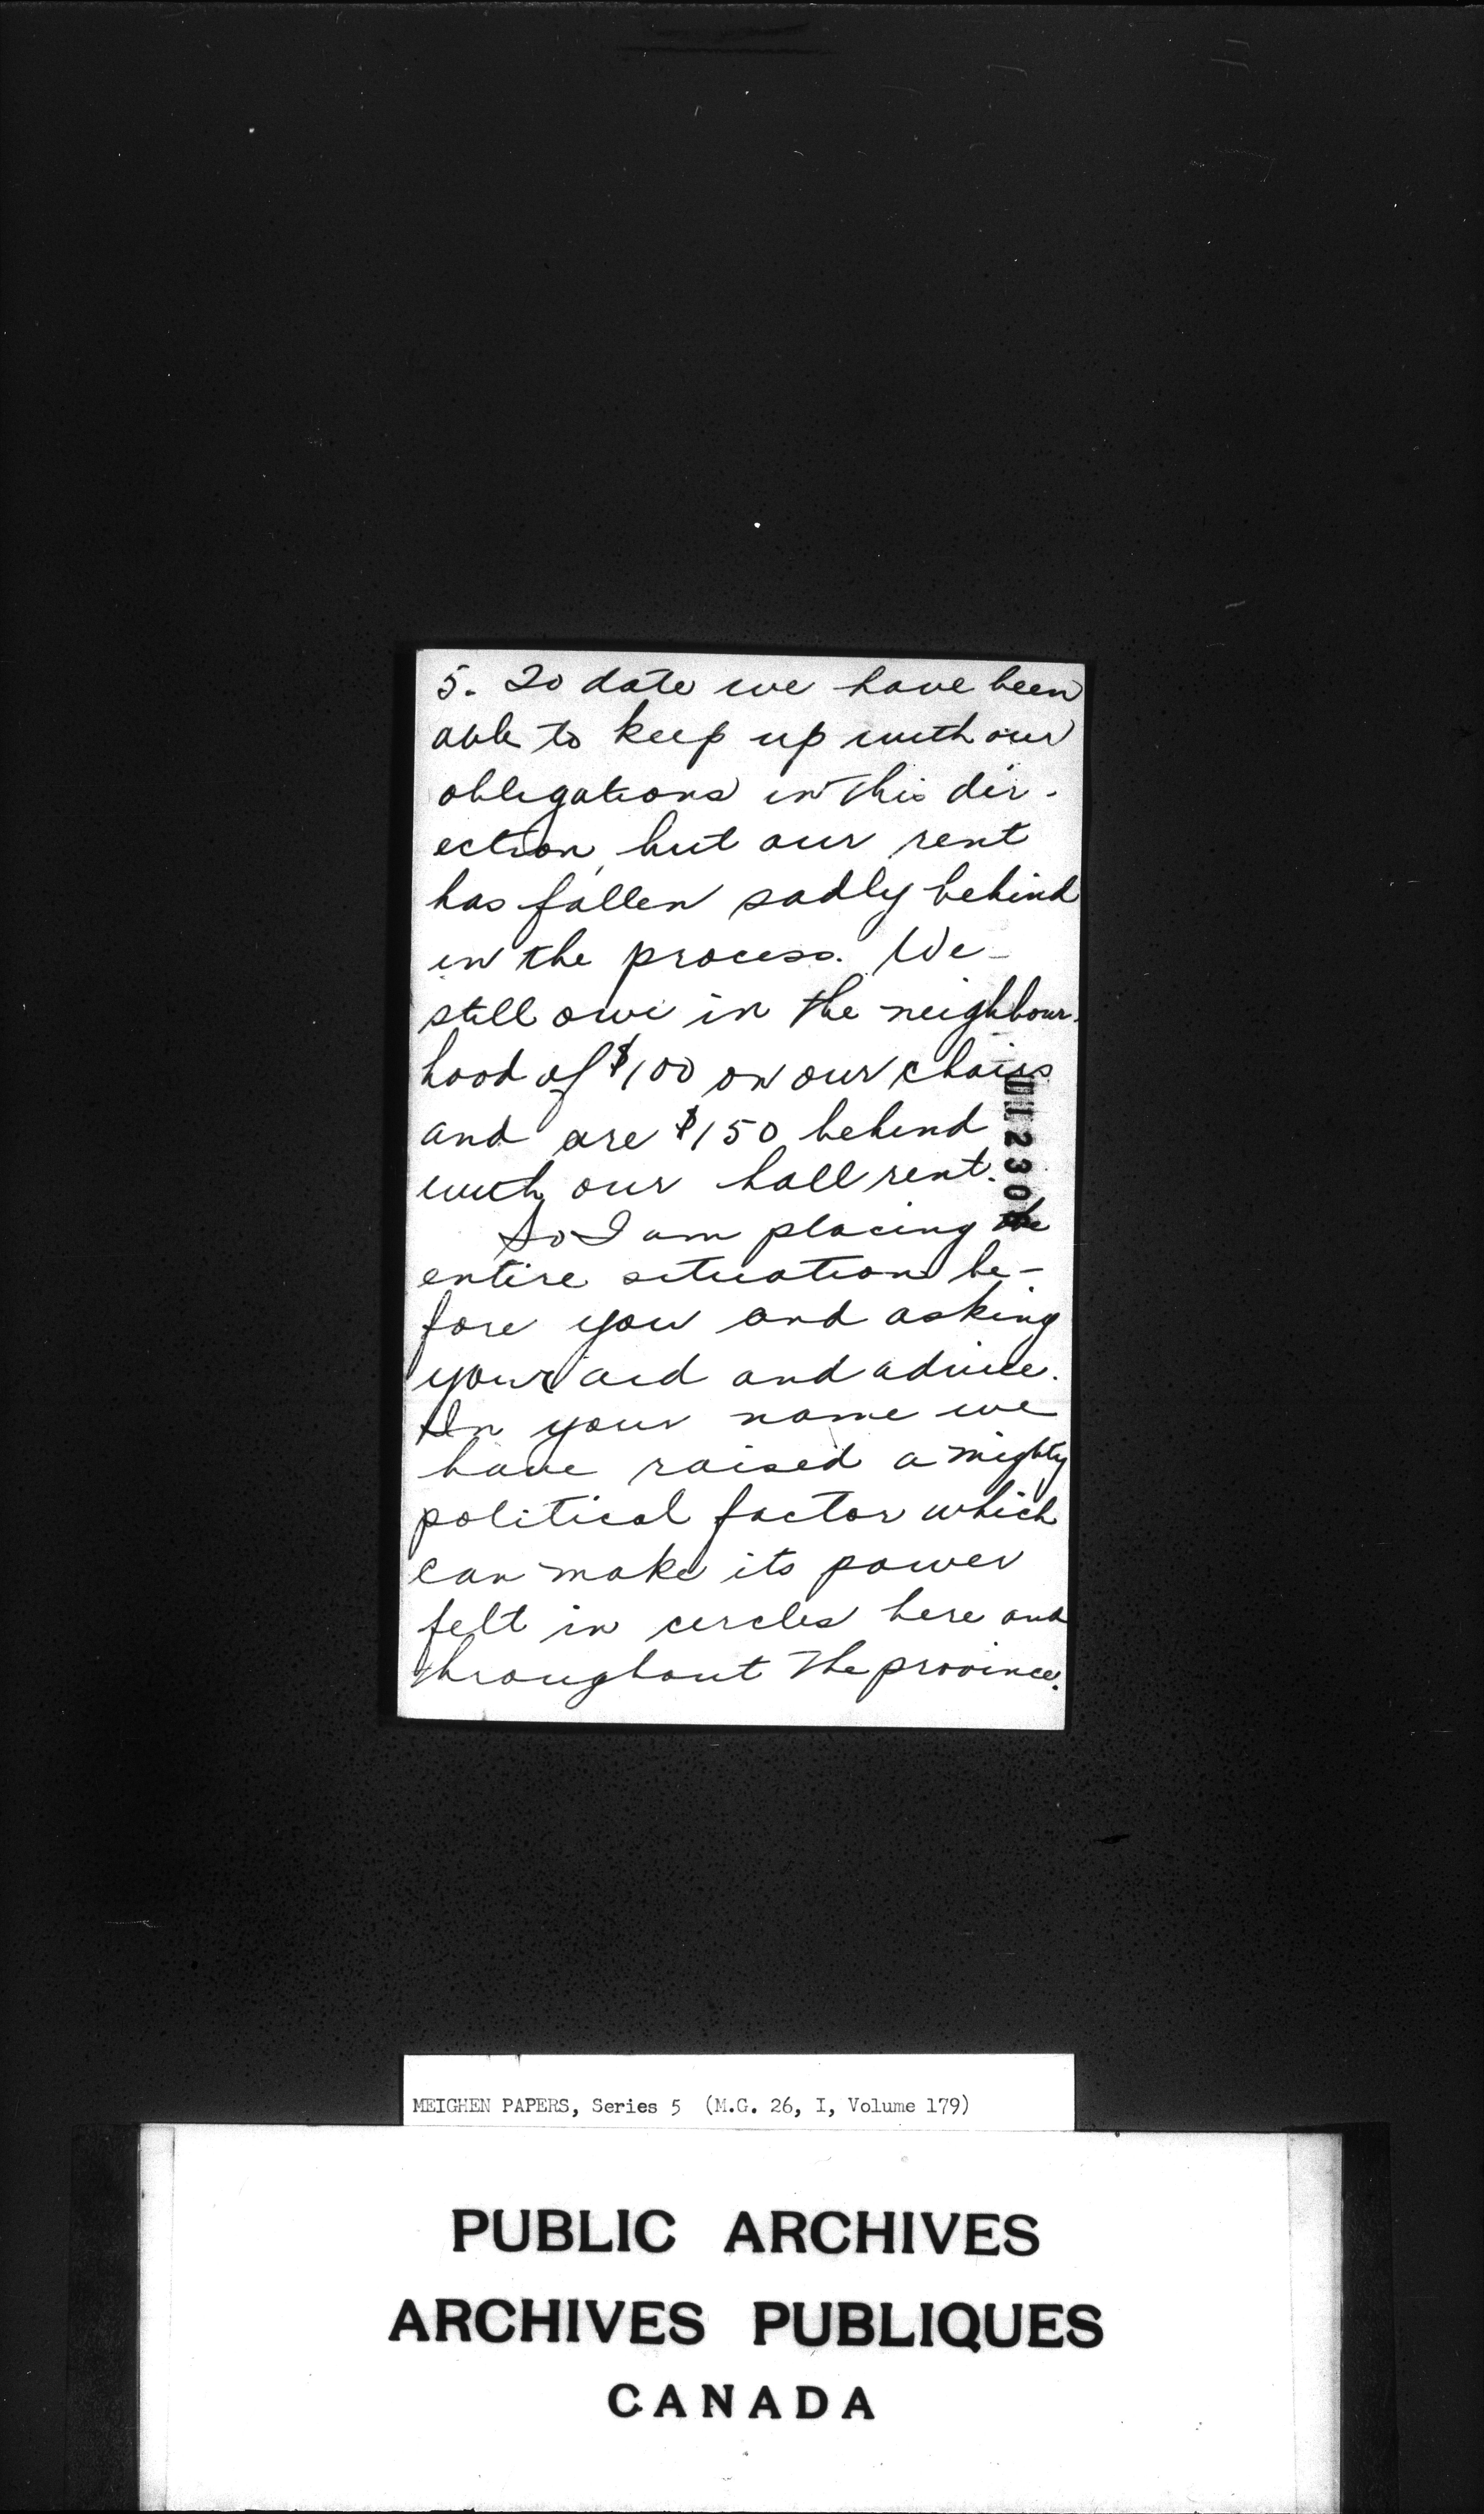 5. To date we have been
able to keep up with our
obligations in this dir-
ection, but our rent
has fallen sadly behind
in the process. We
still owe in the neighbour-
hood of $100 on our chairs
and are $150 behind
with our hall rent.
So I am placing the
entire situation be-
fore you and asking
your aid and advice.
In your name we
have raised a mighty
political factor which
can make its power
felt in circles here and
throughout the province.
MEIGHEN PAPERS, Series 5 (M.G. 26, I, Volume 179)
PUBLIC ARCHIVES
ARCHIVES PUBLIQUES
CANADA